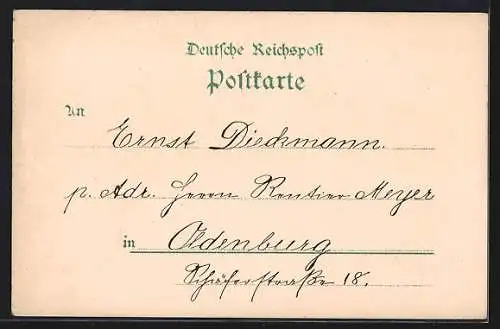 Deutsche Reichspost
Postkarte
An
Ernst Dieckmann.
p. Adr. Herrn Rentier Meyer
in Oldenburg
Schäferstraße 18.